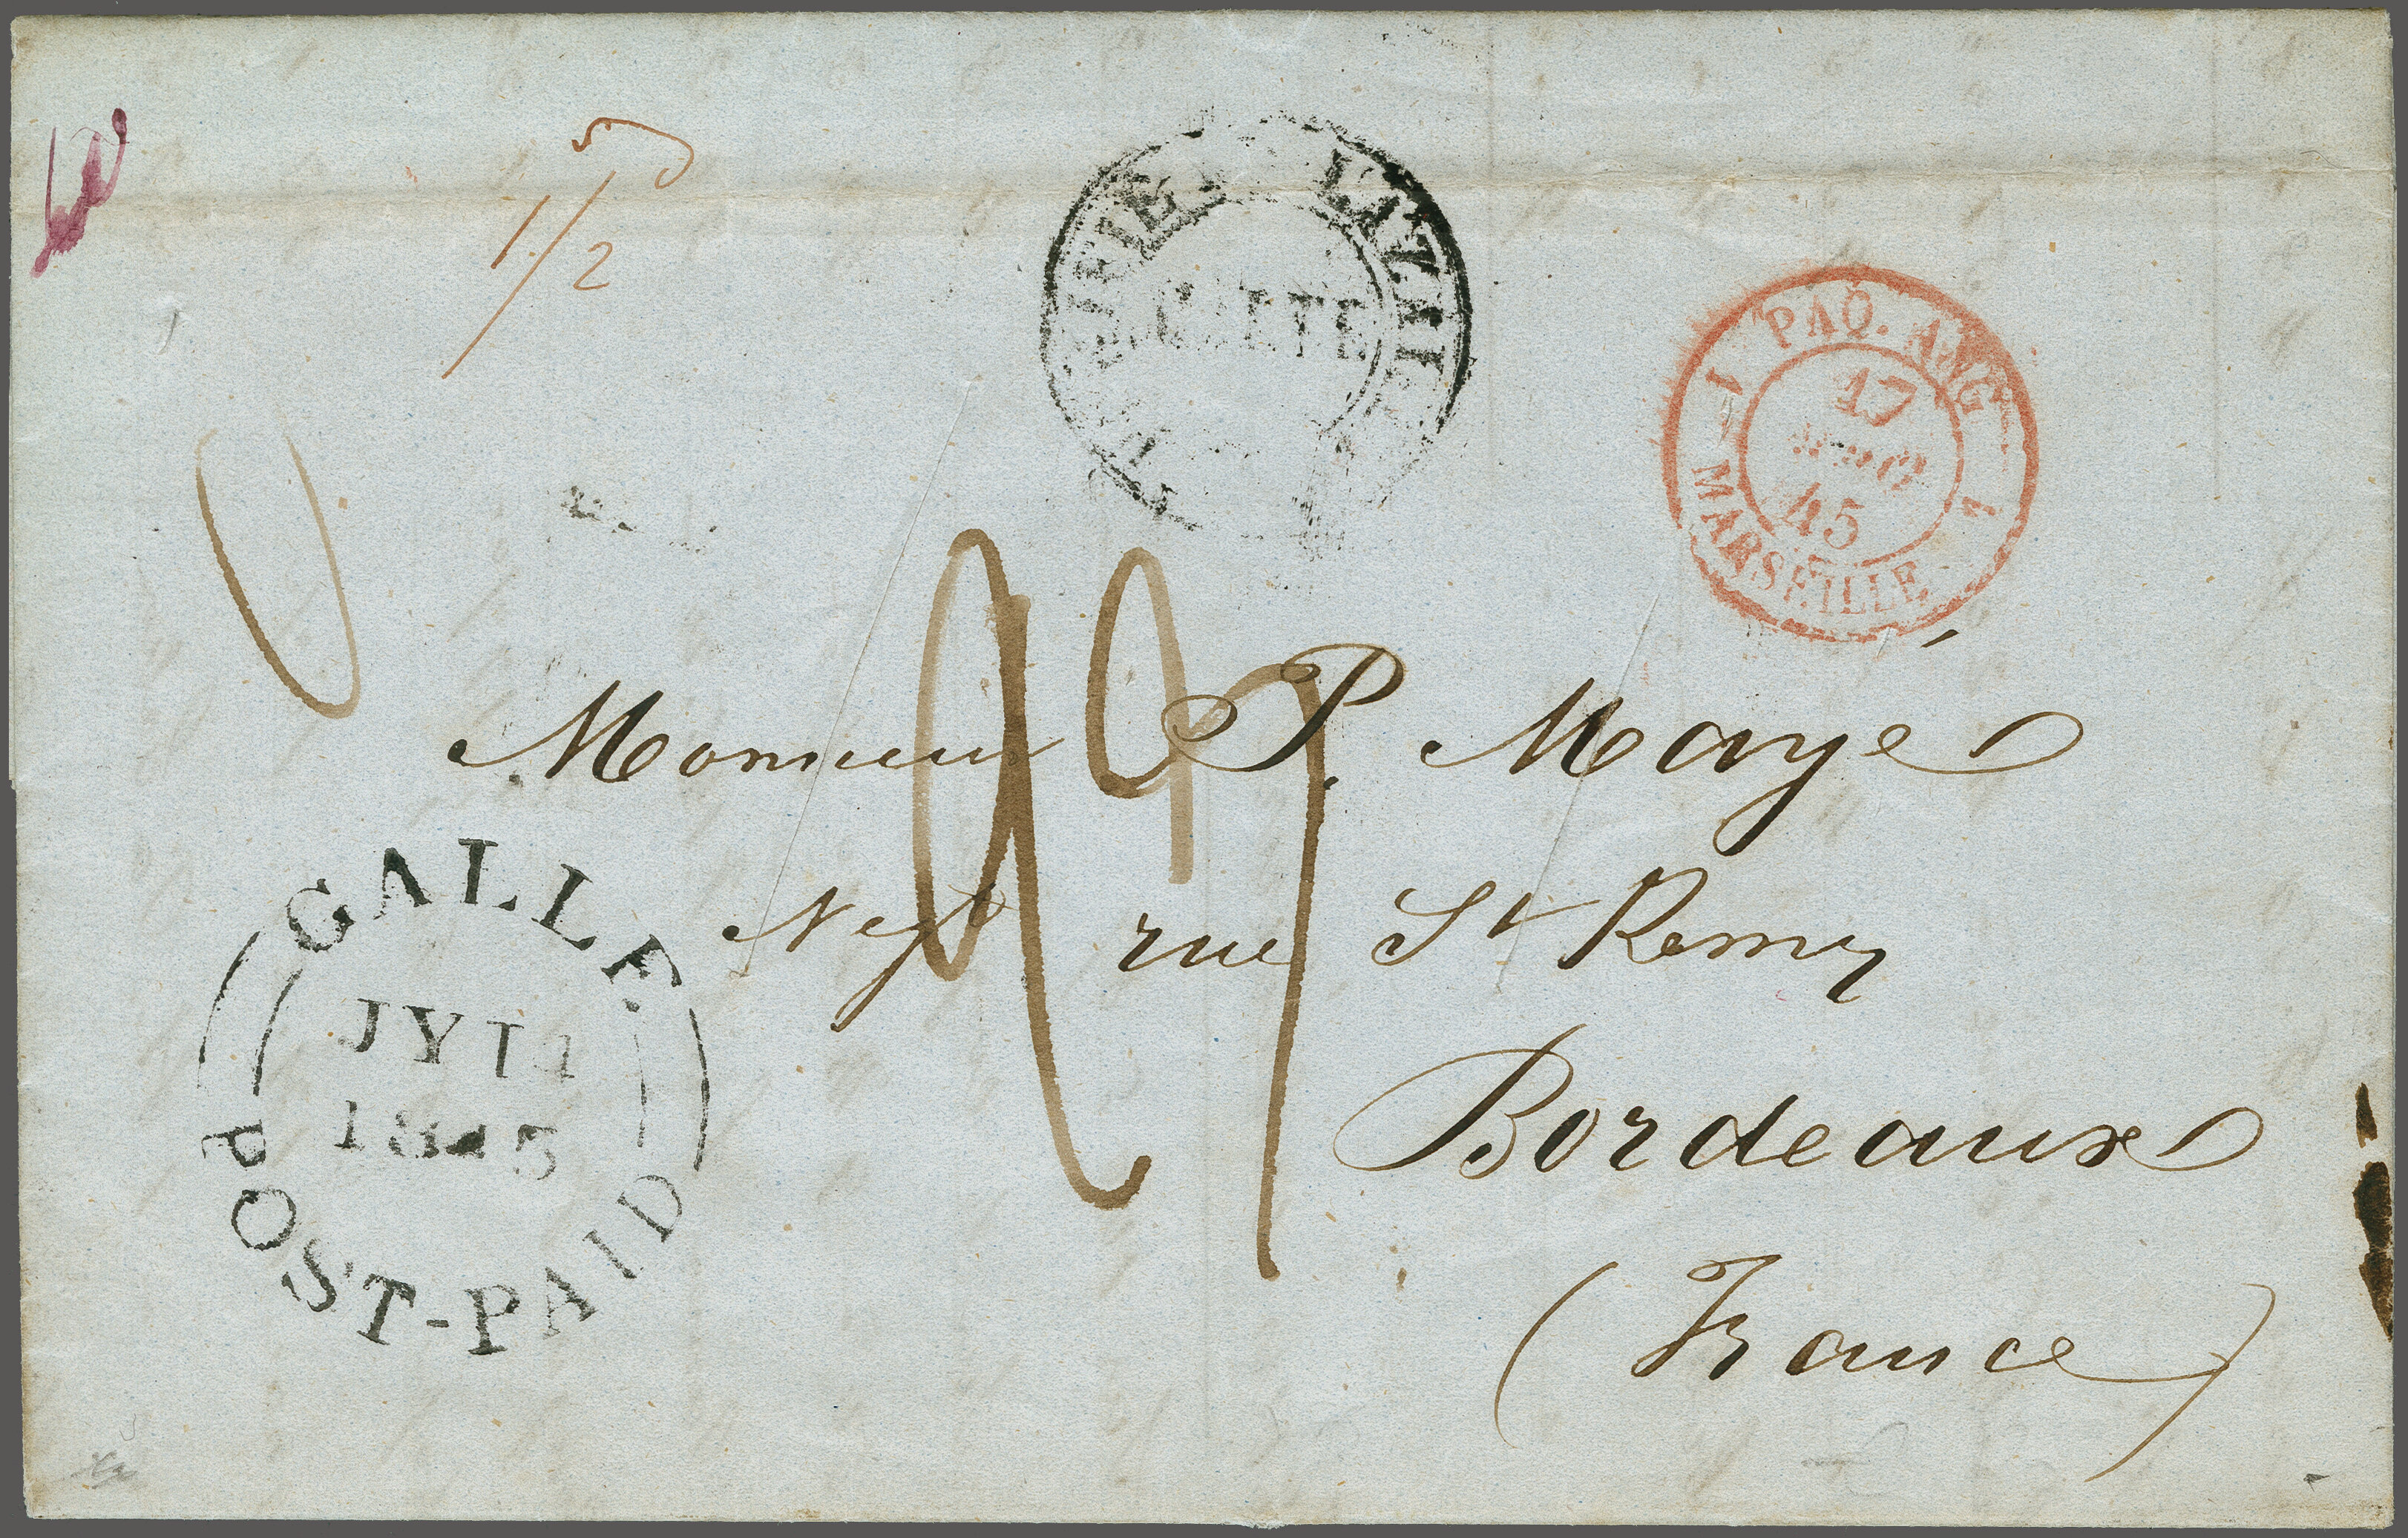 1/2
PAQ. ANG
17
45
MARSEILLE
Monsieur P. Mayé
rue St Remy
Bordeaux
(France)
GALLE
JY 1
1845
POST-PAID